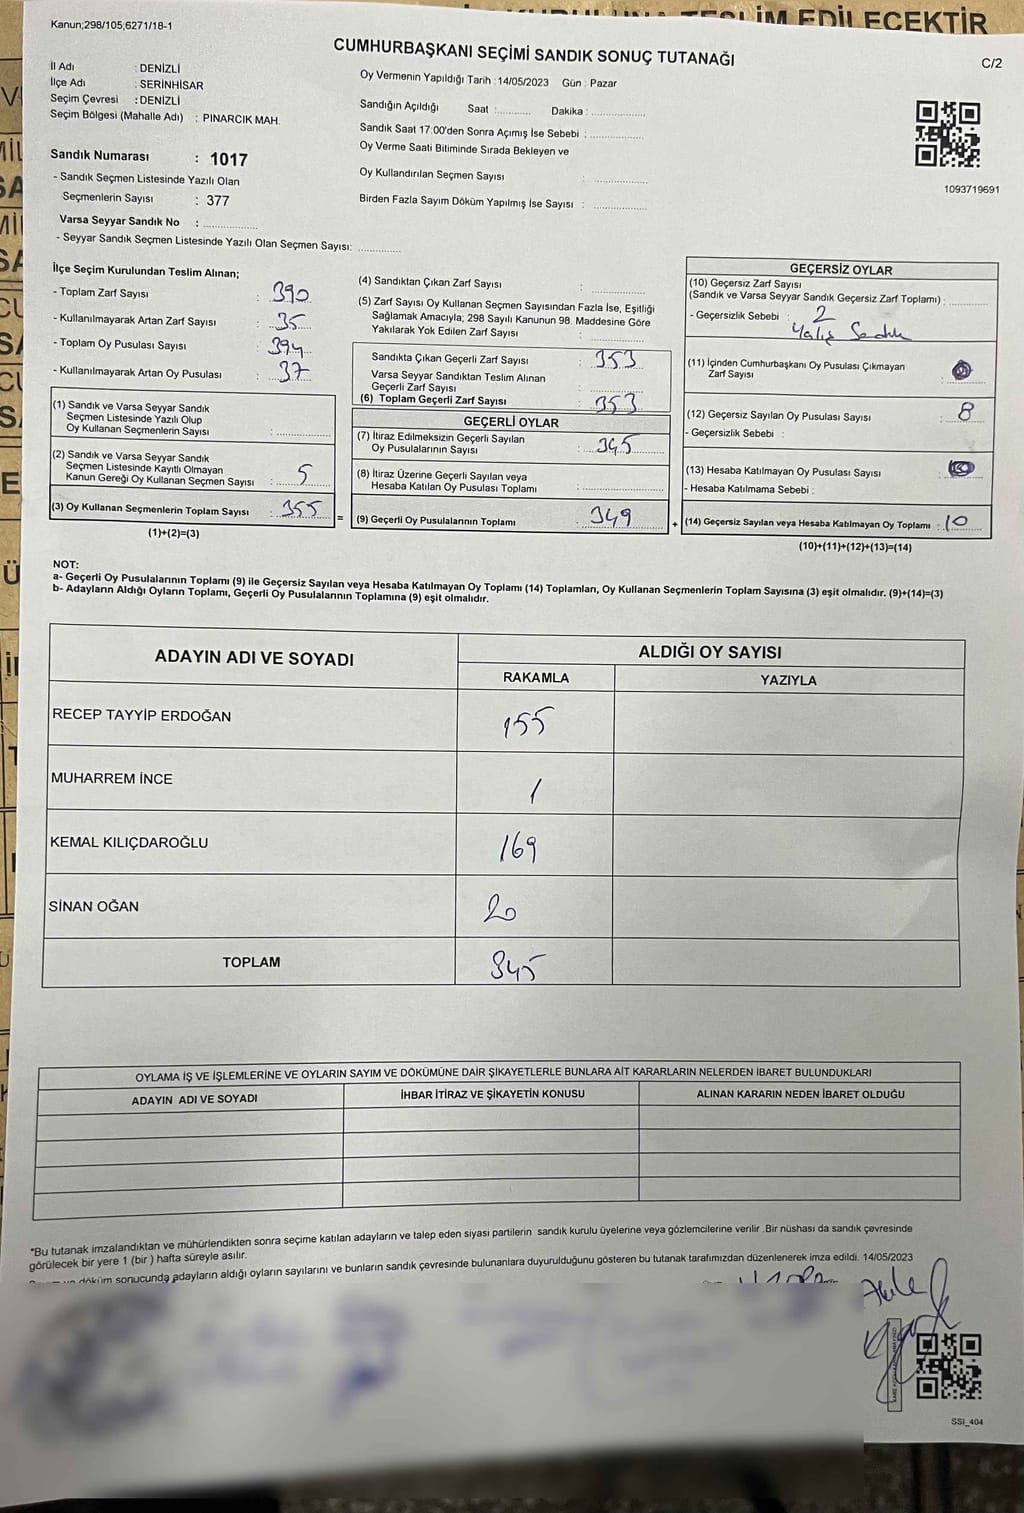 Kanun;298/105,6271/18-1
CUMHURBAŞKANI SEÇİMİ SANDIK SONUÇ TUTANAĞI
C/2
İl Adı : DENİZLİ
İlçe Adı : SERİNHİSAR
Seçim Çevresi : DENİZLİ
Seçim Bölgesi (Mahalle Adı) : PINARCIK MAH.
Sandık Numarası : 1017
- Sandık Seçmen Listesinde Yazılı Olan
Seçmenlerin Sayısı : 377
Varsa Seyyar Sandık No :
- Seyyar Sandık Seçmen Listesinde Yazılı Olan Seçmen Sayısı:
Oy Vermenin Yapıldığı Tarih : 14/05/2023 Gün : Pazar
Sandığın Açıldığı Saat : Dakika :
Sandık Saat 17:00'den Sonra Açımış İse Sebebi :
Oy Verme Saati Bitiminde Sırada Bekleyen ve
Oy Kullandırılan Seçmen Sayısı :
Birden Fazla Sayım Döküm Yapılmış İse Sayısı :
1093719691
İlçe Seçim Kurulundan Teslim Alınan;
- Toplam Zarf Sayısı : 390
- Kullanılmayarak Artan Zarf Sayısı : 35
- Toplam Oy Pusulası Sayısı : 394
- Kullanılmayarak Artan Oy Pusulası : 37
(1) Sandık ve Varsa Seyyar Sandık
Seçmen Listesinde Yazılı Olup
Oy Kullanan Seçmenlerin Sayısı :
(2) Sandık ve Varsa Seyyar Sandık
Seçmen Listesinde Kayıtlı Olmayan
Kanun Gereği Oy Kullanan Seçmen Sayısı : 5
(3) Oy Kullanan Seçmenlerin Toplam Sayısı : 355
(1)+(2)=(3)
=
(4) Sandıktan Çıkan Zarf Sayısı :
(5) Zarf Sayısı Oy Kullanan Seçmen Sayısından Fazla İse, Eşitliği
Sağlamak Amacıyla; 298 Sayılı Kanunun 98. Maddesine Göre
Yakılarak Yok Edilen Zarf Sayısı :
Sandıkta Çıkan Geçerli Zarf Sayısı : 353
Varsa Seyyar Sandıktan Teslim Alınan
Geçerli Zarf Sayısı :
(6) Toplam Geçerli Zarf Sayısı : 353
GEÇERLİ OYLAR
(7) İtiraz Edilmeksizin Geçerli Sayılan
Oy Pusulalarının Sayısı : 345
(8) İtiraz Üzerine Geçerli Sayılan veya
Hesaba Katılan Oy Pusulası Toplamı :
(9) Geçerli Oy Pusulalarının Toplamı : 349
+
GEÇERSİZ OYLAR
(10) Geçersiz Zarf Sayısı
(Sandık ve Varsa Seyyar Sandık Geçersiz Zarf Toplamı) :
- Geçersizlik Sebebi : 2
Yalış Sandık
(11) İçinden Cumhurbaşkanı Oy Pusulası Çıkmayan
Zarf Sayısı :
(12) Geçersiz Sayılan Oy Pusulası Sayısı : 8
- Geçersizlik Sebebi :
(13) Hesaba Katılmayan Oy Pusulası Sayısı :
- Hesaba Katılmama Sebebi :
(14) Geçersiz Sayılan veya Hesaba Katılmayan Oy Toplamı : 10
(10)+(11)+(12)+(13)=(14)
NOT:
a- Geçerli Oy Pusulalarının Toplamı (9) ile Geçersiz Sayılan veya Hesaba Katılmayan Oy Toplamı (14) Toplamları, Oy Kullanan Seçmenlerin Toplam Sayısına (3) eşit olmalıdır. (9)+(14)=(3)
b- Adayların Aldığı Oyların Toplamı, Geçerli Oy Pusulalarının Toplamına (9) eşit olmalıdır.
ADAYIN ADI VE SOYADI
ALDIĞI OY SAYISI
RAKAMLA YAZIYLA
RECEP TAYYİP ERDOĞAN 155
MUHARREM İNCE 1
KEMAL KILIÇDAROĞLU 169
SİNAN OĞAN 20
TOPLAM 345
OYLAMA İŞ VE İŞLEMLERİNE VE OYLARIN SAYIM VE DÖKÜMÜNE DAİR ŞİKAYETLERLE BUNLARA AİT KARARLARIN NELERDEN İBARET BULUNDUKLARI
ADAYIN ADI VE SOYADI İHBAR İTİRAZ VE ŞİKAYETİN KONUSU ALINAN KARARIN NEDEN İBARET OLDUĞU
*Bu tutanak imzalandıktan ve mühürlendikten sonra seçime katılan adayların ve talep eden siyası partilerin sandık kurulu üyelerine veya gözlemcilerine verilir .Bir nüshası da sandık çevresinde
görülecek bir yere 1 (bir ) hafta süreyle asılır.
döküm sonucunda adayların aldığı oyların sayılarını ve bunların sandık çevresinde bulunanlara duyurulduğunu gösteren bu tutanak tarafımızdan düzenlenerek imza edildi. 14/05/2023
SSI_404